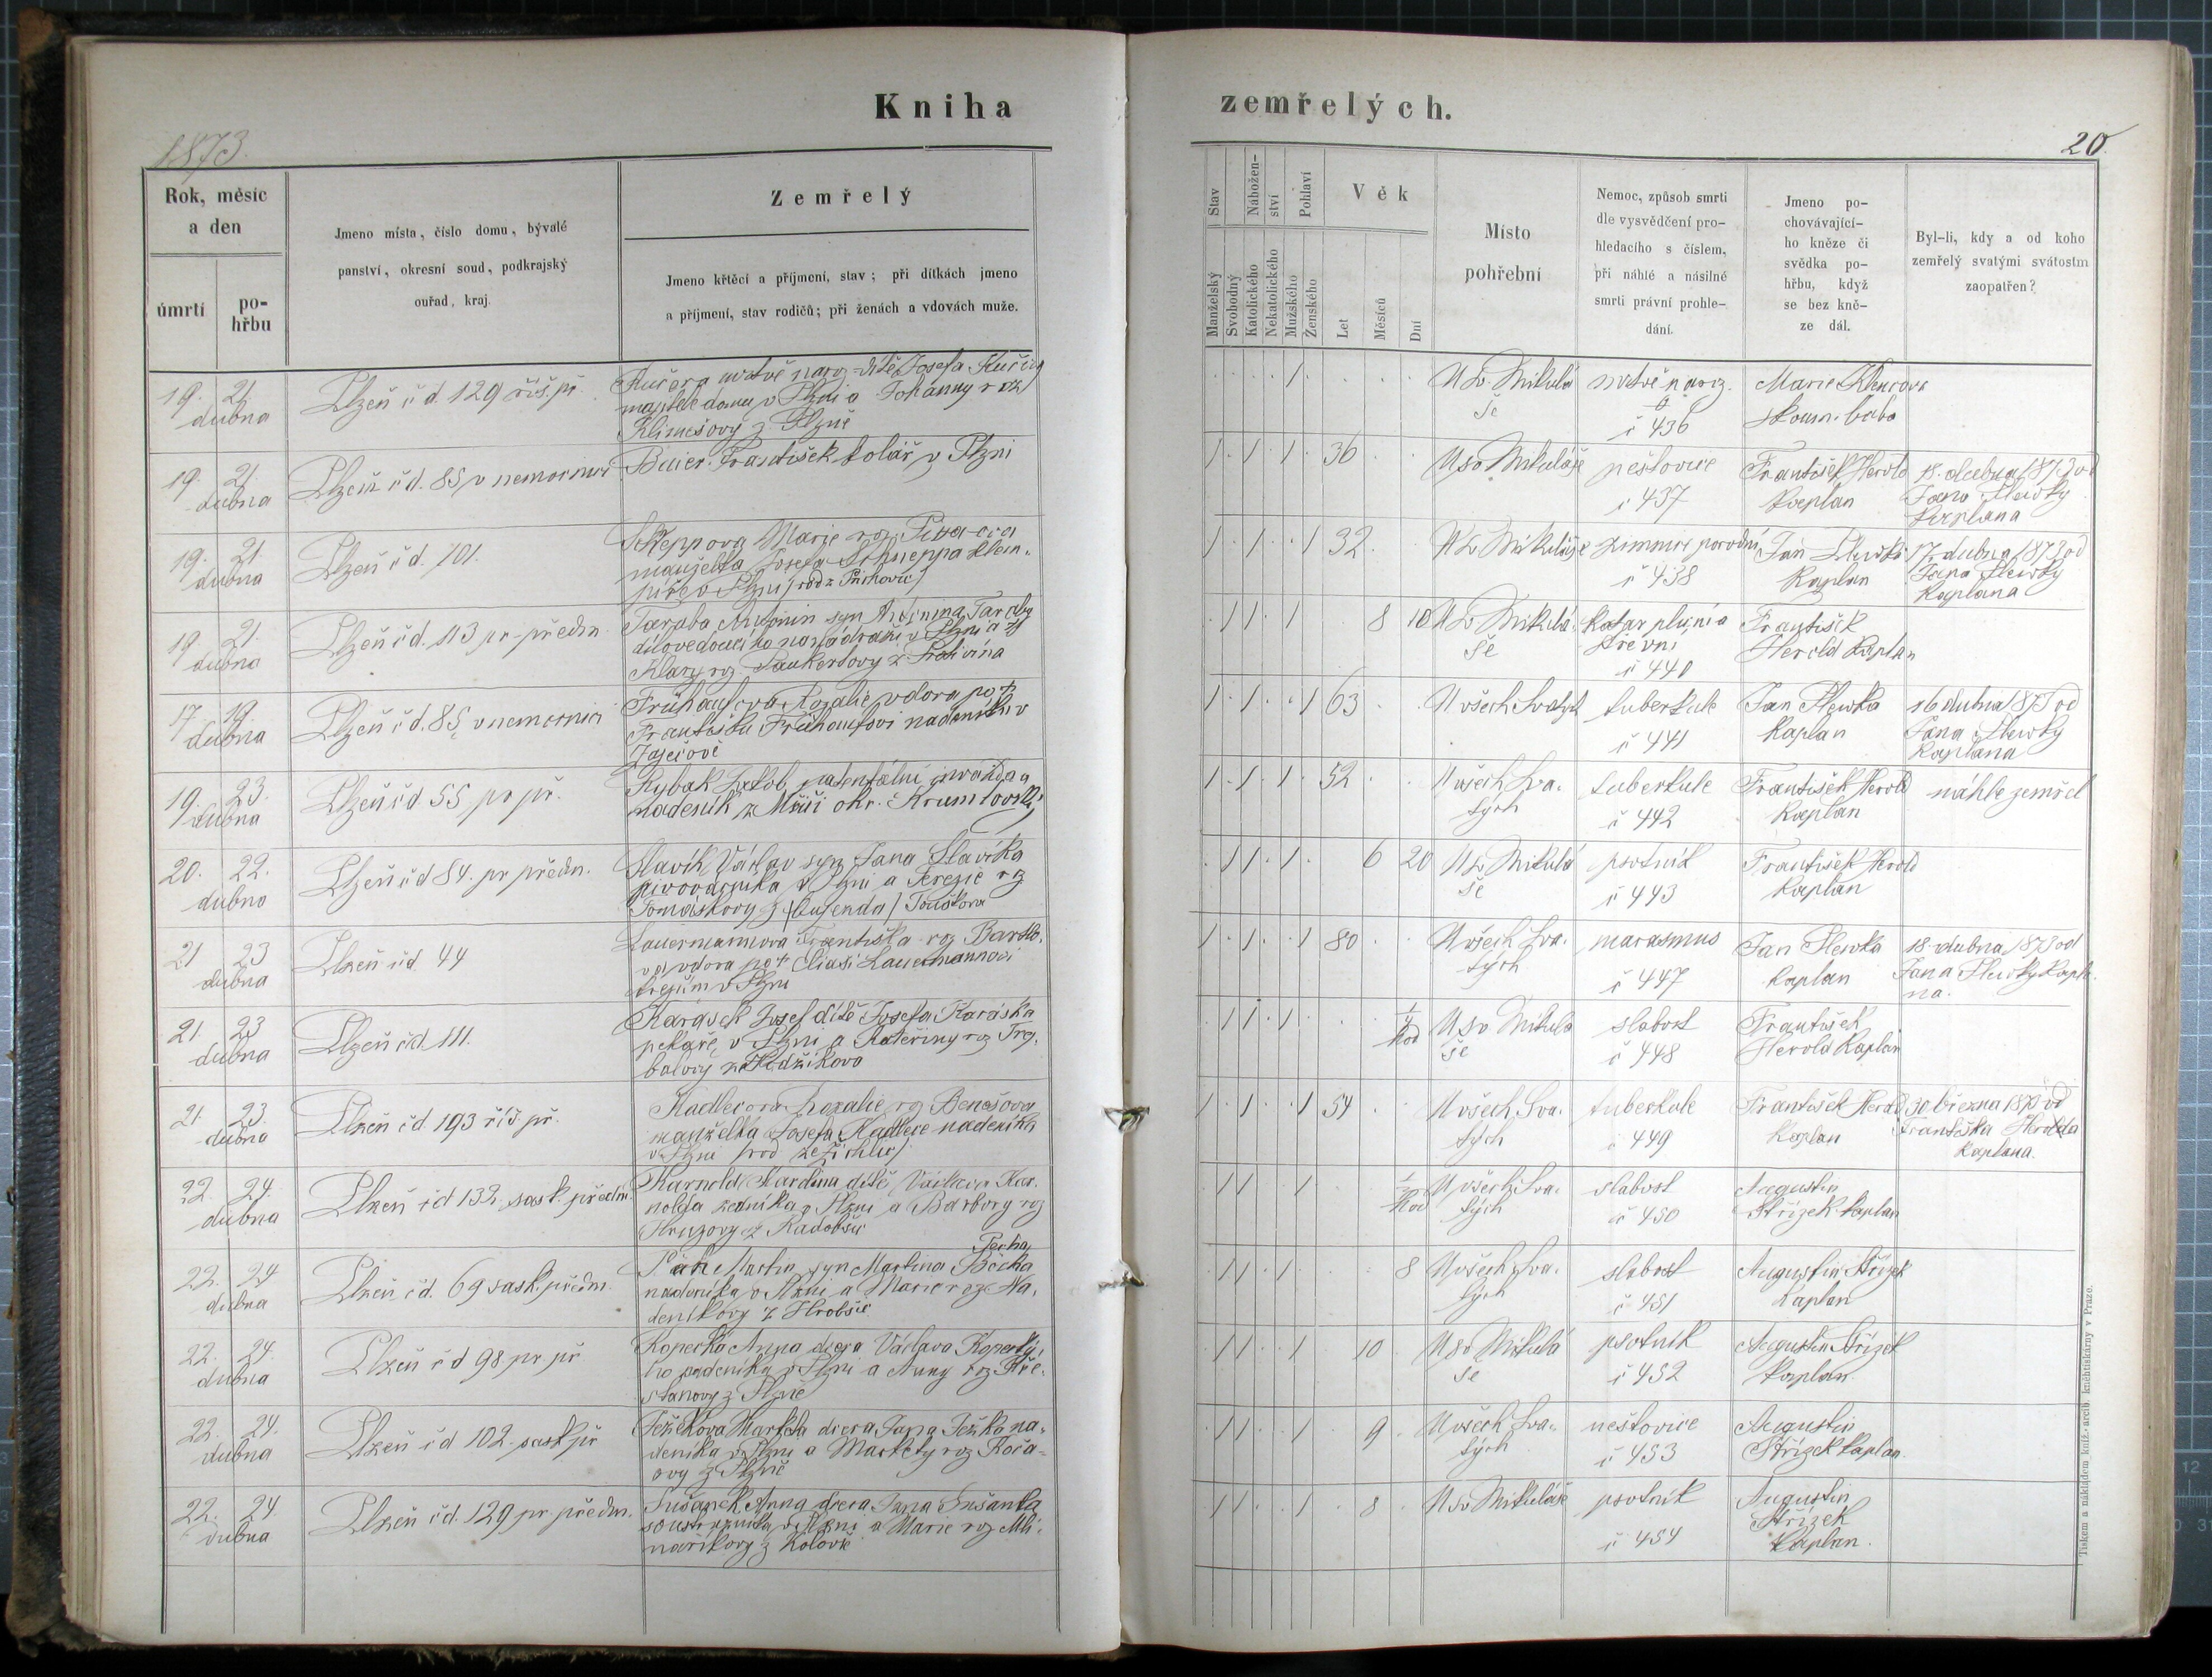 Kniha
zemřelých.
1873.
20.
Rok, měsíc
a den
úmrtí
po-
hřbu
Jmeno místa, číslo domu, bývalé
panství, okresní soud, podkrajský
ouřad, kraj.
Zemřelý
Jmeno křtěcí a příjmení, stav; při dítkách jmeno
a příjmení, stav rodičů; při ženách a vdovách muže.
Stav
Nábožen-
ství
Pohlaví
Manželský
Svobodný
Katolického
Nekatolického
Mužského
Ženského
Věk
Let
Měsíců
Dní
Místo
pohřební
Nemoc, způsob smrti
dle vysvědčení pro-
hledacího s číslem,
při náhlé a násilné
smrti právní prohle-
dání.
Jmeno po-
chovávající-
ho kněze či
svědka po-
hřbu, když
se bez kně-
ze dál.
Byl-li, kdy a od koho
zemřelý svatými svátostmi
zaopatřen?
19. 21.
dubna
Plzeň čd. 129 říš. př.
Kučera mrtvě naroz. dítě Josefa Kučery
majitele domu v Plzni a Johanny roz
Klimešový z Plzně
U sv. Mikulá
še
mrtvě naroz.
č 436
Marie
zkoum. baba
19. 21.
dubna
Plzeň čd. 85 v nemocnici
František kolář v Plzni
1 1 1 36
U sv Mikuláše
neštovice
č 437
František Herold
kaplan
18. dubna 1873 od
Jana Slewky
kaplana
19. 21.
dubna
Plzeň čd. 101.
Marie roz.
manželka Josefa Schneppa klem-
píře v Plzni
1 1 1 32
U sv Mikuláše
zimnice porodní
č 438
Jan Slewka
kaplan
17. dubna 1873 od
Jana Slewky
kaplana
19. 21.
dubna
Plzeň čd. 113 pr. předm
Taraba Antonín syn Antonína Taraby
dílovedoucího na nádraží v Plzni a
Klary roz Paukertovy z Protivína
1 1 1 8 10
U sv Mikulá-
še
Katar plic a
střevní
č 440
František
Herold kaplan
17 19.
dubna
Plzeň čd. 85 v nemocnici
Frühaufova Rozalie vdova po †
Františku Frühaufovi nadeníku v
1 1 1 63
U všech Svatých
tuberkule
č 441
Jan Slewka
kaplan
16 dubna 1873 od
Jana Slewky
kaplana
19. 23.
dubna
Plzeň čd 55 pr př.
Rybak Jakob patentální invalida a
nadeník z okr. Krumlovsk.
1 1 1 52
U všech Sva-
tých
tuberkule
č 442
František Herold
kaplan
náhle zemřel
20. 22.
dubna
Plzeň čd 84. pr předm.
Slavík Václav syn Jana Slavíka
pivovarníka v Plzni a Terezie roz
Tomáškovy z
1 1 1 6 20
U sv Mikulá
še
psotník
č 443
František Herold
kaplan
21 23
dubna
Plzeň čd 44
Lauermannova Františka roz
vdova po † Eliáši Lauermannovi
v Plzni
1 1 1 80
U všech Sva-
tých
marasmus
č 447
Jan Slewka
kaplan
18. dubna 1873 od
Jana Slewky kapla-
na.
21. 23
dubna
Plzeň čd. 111.
Karásek Josef dítě Josefa Karáska
pekaře v Plzni a Kateřiny roz
1 1 1 hod
U sv Mikulá
še
slabost
č 448
František
Herold kaplan
21. 23.
dubna
Plzeň čd 193 říš. př.
Kadlecova Rozalie roz Benešova
manželka Josefa Kadlece nadeníka
v Plzni
1 1 1 54
U všech Sva-
tých
tuberkule
č 449
František Herold
kaplan
30. března 1873 od
Františka Herolda
kaplana.
22. 24.
dubna
Plzeň čd 132. sask. předm.
Karnold dítě Václava Kar-
nolda zedníka v Plzni a Barbory roz
Hruzovy z
1 1 1 hod
U všech Sva-
tých
slabost
č 450
Augustin
Střízek kaplan
22. 24
dubna
Plzeň čd. 69 sask. předm.
Pecha
Martin syn Martina
nadeníka v Plzni a Marie roz Na-
deníkovy z Hrobčic
1 1 1 8
U všech Sva-
tých
slabost
č 451
Augustin Střízek
kaplan
22. 24.
dubna
Plzeň čd 98 pr př
Kopecká Anna dcera Václava Kopecký-
ho nadeníka v Plzni a Anny roz Kře-
stanovy z Plzně
1 1 1 10
U sv Mikulá
še
psotník
č 452
Augustin Střízek
kaplan
22. 24.
dubna
Plzeň čd 102. sask př
Ježkova Marketa dcera Jana Ježka na-
deníka v Plzni a Markety roz
ovy z Plzně
1 1 1 9
U všech Sva-
tých
neštovice
č 453
Augustin
Střízek kaplan.
22. 24
dubna
Plzeň čd. 129 pr. předm.
Sušanek Anna dcera Jana Sušanka
soustružníka v Plzni a Marie roz Mli-
naříkovy z
1 1 1 8
U sv Mikuláše
psotník
č 454
Augustin
Střízek
kaplan.
Tiskem a nákladem kníž.-arcib. kněhtiskárny v Praze.